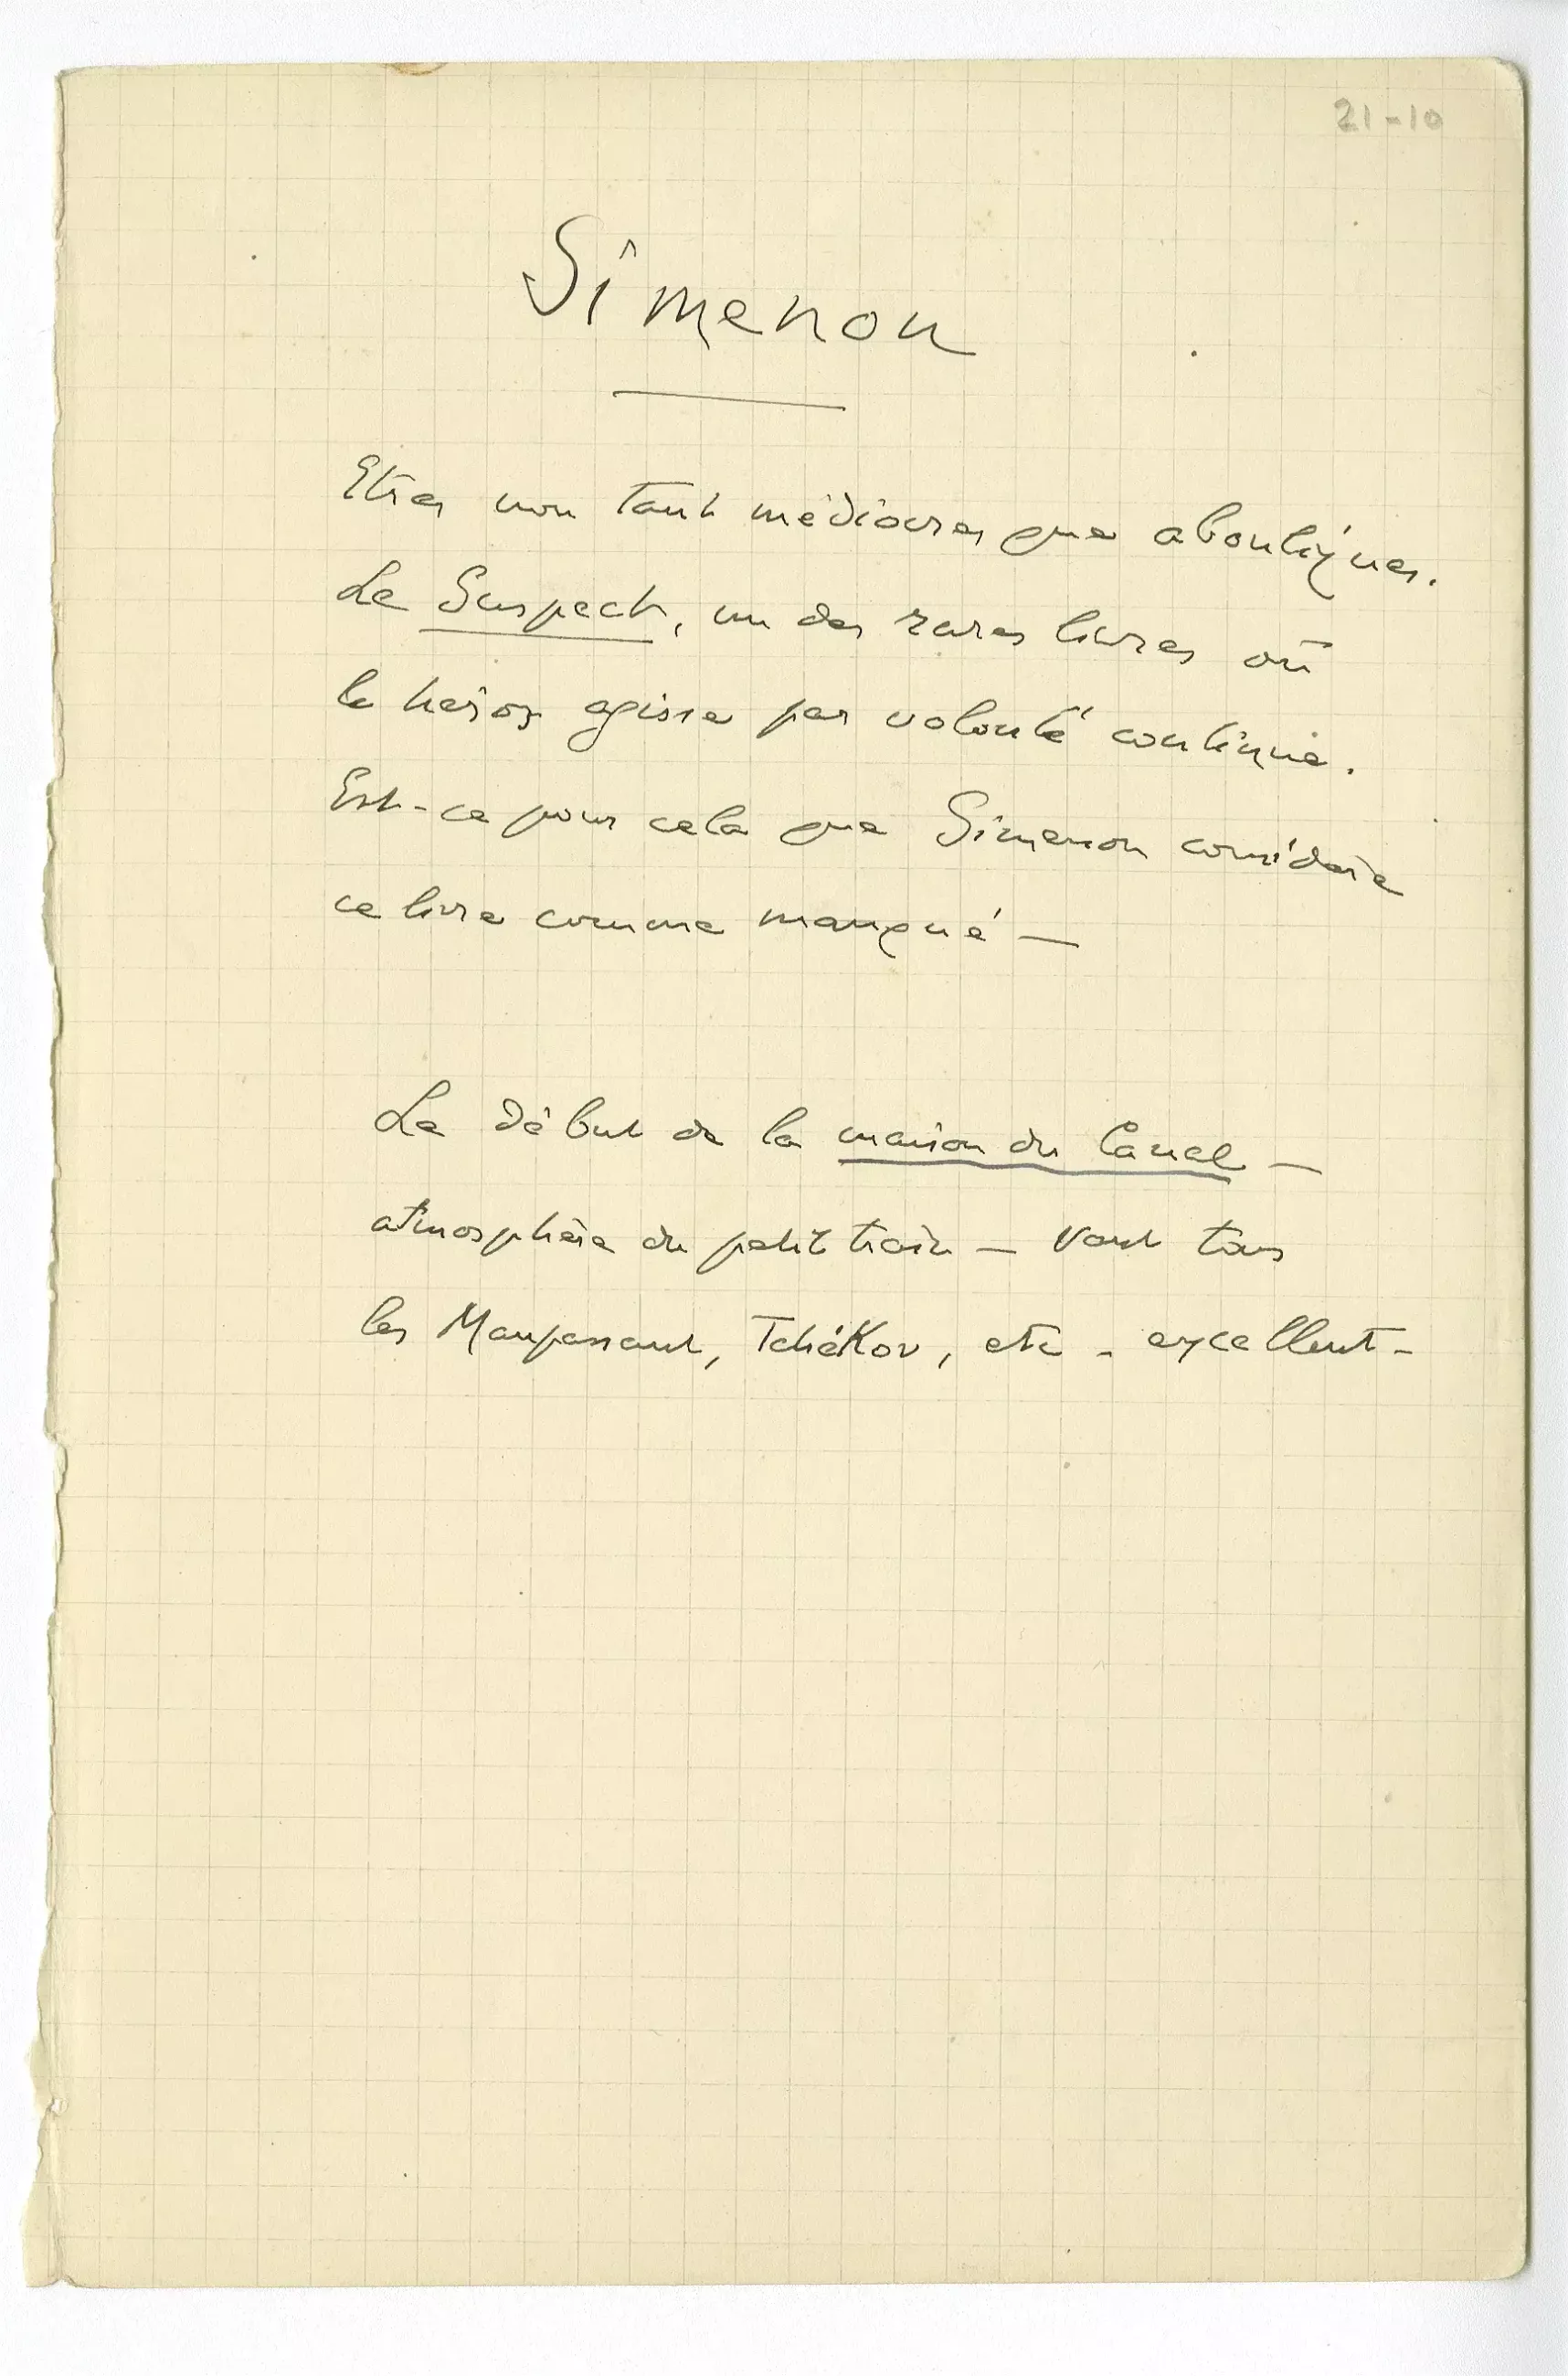 21-10
Simenon
Etres non tant médiocres que abouliques.
Le Suspect, un des rares livres où
le héros agisse par volonté continue.
Est-ce pour cela que Simenon considère
ce livre comme manqué —
Le début de la maison du Canal —
atmosphère du petit train — Vaut tous
les Maupassant, Tchékov, etc - excellent -